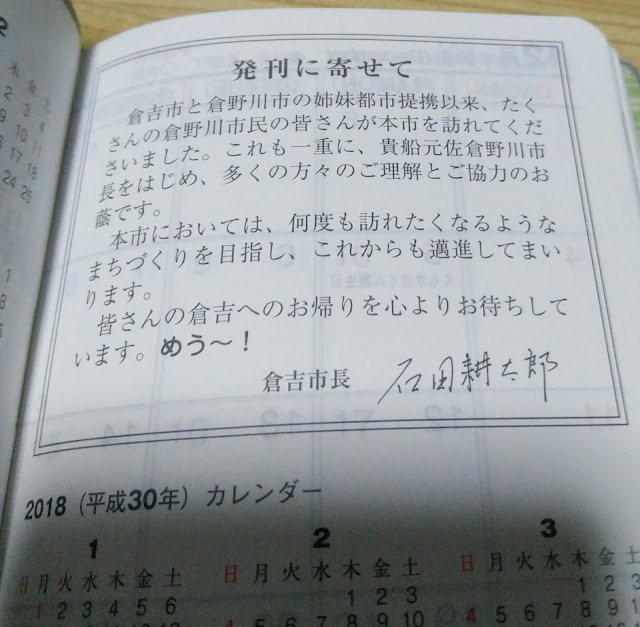 発刊に寄せて
倉吉市と倉野川市の姉妹都市提携以来、たく
さんの倉野川市民の皆さんが本市を訪れてくだ
さいました。これも一重に、貴船元佐倉野川市
長をはじめ、多くの方々のご理解とご協力のお
蔭です。
本市においては、何度も訪れたくなるような
まちづくりを目指し、これからも邁進してまい
ります。
皆さんの倉吉へのお帰りを心よりお待ちして
います。めう〜！
倉吉市長 石田耕太郎
2018（平成30年）カレンダー
1
2
3
日 月 火 水 木 金 土
1 2 3 4 5 6
日 月 火 水 木 金 土
1 2 3
4 5 6 7 8 9 10
日 月 火 水 木 金 土
1 2 3
4 5 6 7 8 9 1
木 金 土
2 3 4
9 10 11
16 17 18
24 25